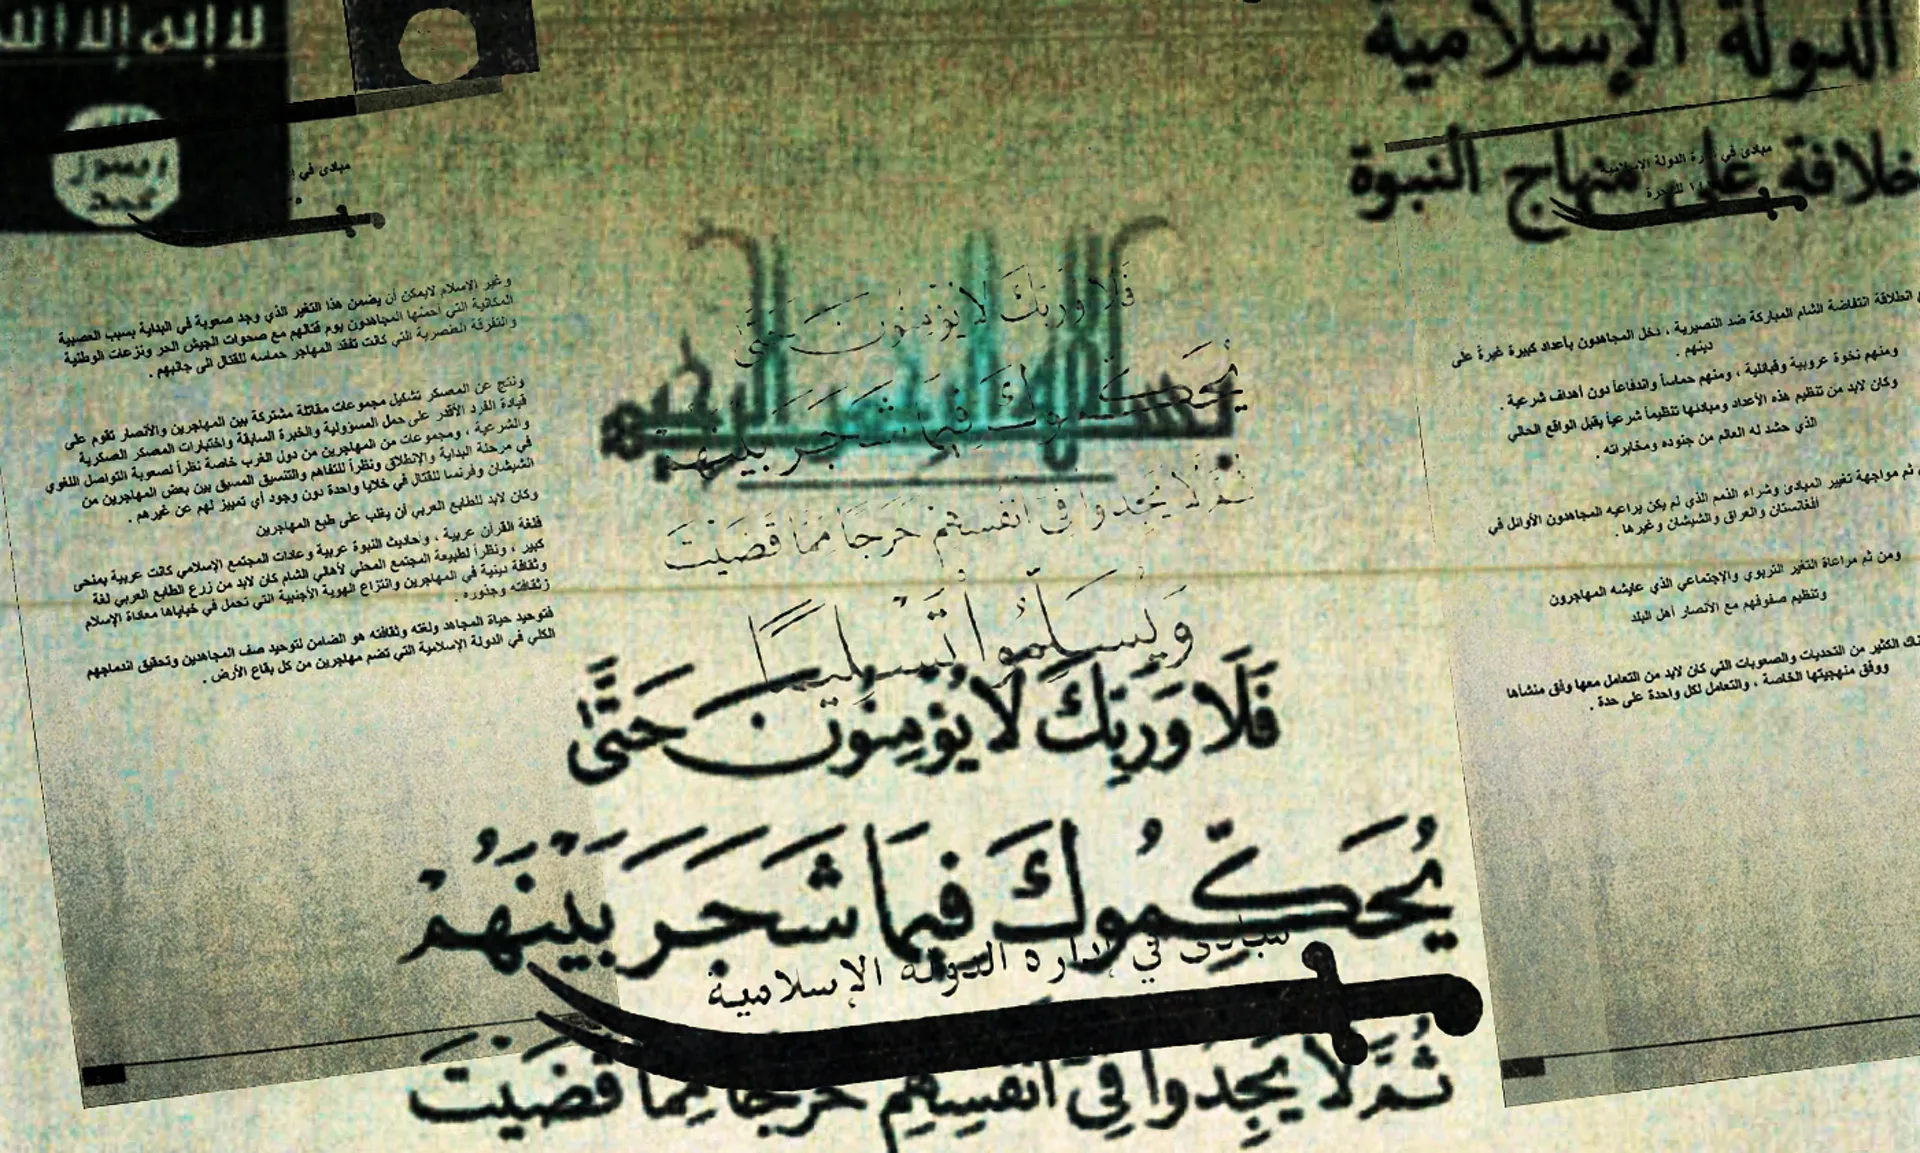 لا إله إلا الله
الله
رسول
محمد
الدولة الإسلامية
خلافة على منهاج النبوة
مبادئ في
مبادئ في إدارة الدولة الاسلامية
بسم الله الرحمن الرحيم
فَلَا وَرَبِّكَ لَا يُؤْمِنُونَ حَتَّىٰ
يُحَكِّمُوكَ فِيمَا شَجَرَ بَيْنَهُمْ
ثُمَّ لَا يَجِدُوا فِي أَنفُسِهِمْ حَرَجًا مِّمَّا قَضَيْتَ
وَيُسَلِّمُوا تَسْلِيمًا
انطلاقة انتفاضة الشام المباركة ضد النصيرية ، دخل المجاهدون بأعداد كبيرة غيرةً على
دينهم .
ومنهم نخوة عروبية وقبائلية ، ومنهم حماساً واندفاعاً دون أهداف شرعية .
وكان لابد من تنظيم هذه الأعداد ومبادئها تنظيماً شرعياً يقبل الواقع الحالي
الذي حشد له العالم من جنوده ومخابراته .
ثم مواجهة تغيير المبادئ وشراء الذمم الذي لم يكن يراعيه المجاهدون الأوائل في
أفغانستان والعراق والشيشان وغيرها .
ومن ثم مراعاة التغير التربوي والإجتماعي الذي عايشه المهاجرون
وتنظيم صفوفهم مع الأنصار أهل البلد
الكثير من التحديات والصعوبات التي كان لابد من التعامل معها وفق منشأها
ووفق منهجيتها الخاصة ، والتعامل لكل واحدة على حدة .
وغير الإسلام لايمكن أن يضمن هذا التغير الذي وجد صعوبة في البداية بسبب العصبية
المكانية التي المجاهدون يوم قتالهم مع صحوات الجيش الحر ونزعات الوطنية
والتفرقة العنصرية التي كانت تفقد المهاجر حماسه للقتال الى جانبهم .
ونتج عن المعسكر تشكيل مجموعات مقاتلة مشتركة بين المهاجرين والأنصار تقوم على
قيادة الفرد الأقدر على حمل المسؤولية والخبرة السابقة واختبارات المعسكر العسكرية
والشرعية ، ومجموعات من المهاجرين من دول الغرب خاصة نظراً لصعوبة التواصل اللغوي
في مرحلة البداية والإنطلاق ونظراً للتفاهم والتنسيق المسبق بين بعض المهاجرين من
الشيشان وفرنسا للقتال في خلايا واحدة دون وجود أي تمييز لهم عن غيرهم .
وكان لابد للطابع العربي أن يغلب على طبع المهاجرين
فلغة القرآن عربية ، وأحاديث النبوة عربية وعادات المجتمع الإسلامي كانت عربية بمنحى
كبير ، ونظراً لطبيعة المجتمع المحلي لأهالي الشام كان لابد من زرع الطابع العربي لغة
وثقافة دينية في المهاجرين وانتزاع الهوية الأجنبية التي تحمل في خباياها معاداة الإسلام
وثقافته وجذوره .
فتوحيد حياة المجاهد ولغته وثقافته هو الضامن لتوحيد صف المجاهدين وتحقيق اندماجهم
الكلي في الدولة الإسلامية التي تضم مهاجرين من كل بقاع الأرض .
فَلَا وَرَبِّكَ لَا يُؤْمِنُونَ حَتَّىٰ
يُحَكِّمُوكَ فِيمَا شَجَرَ بَيْنَهُمْ
مبادئ في إدارة الدولة الإسلامية
ثُمَّ لَا يَجِدُوا فِي أَنفُسِهِمْ حَرَجًا مِّمَّا قَضَيْتَ